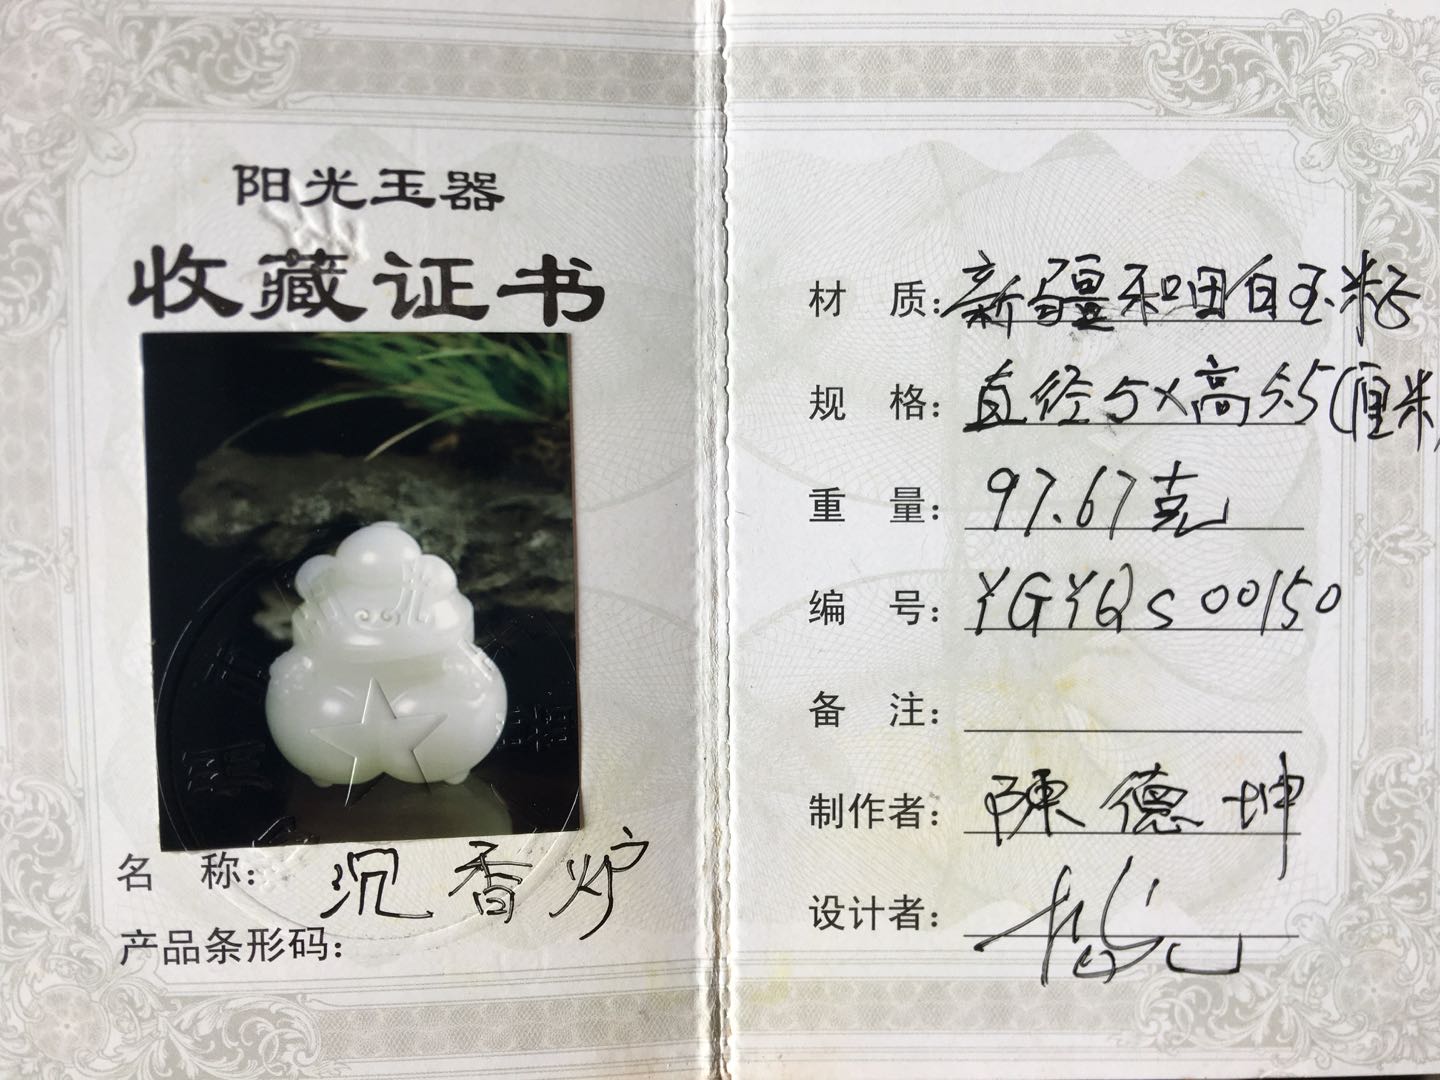 阳光玉器
收藏证书
名 称：沉香炉
产品条形码：
材 质：新疆和田白玉籽
规 格：直径5×高5.5(厘米)
重 量：97.67克
编 号：YGYQS00150
备 注：
制作者：陳德坤
设计者：